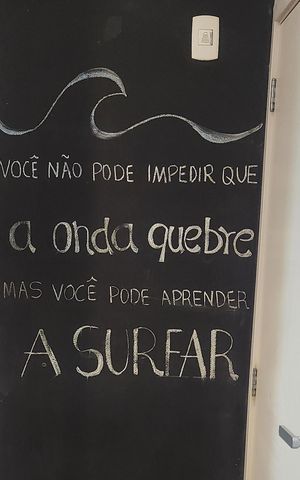 VOCÊ NÃO PODE IMPEDIR QUE
a onda quebre
MAS VOCÊ PODE APRENDER
A SURFAR